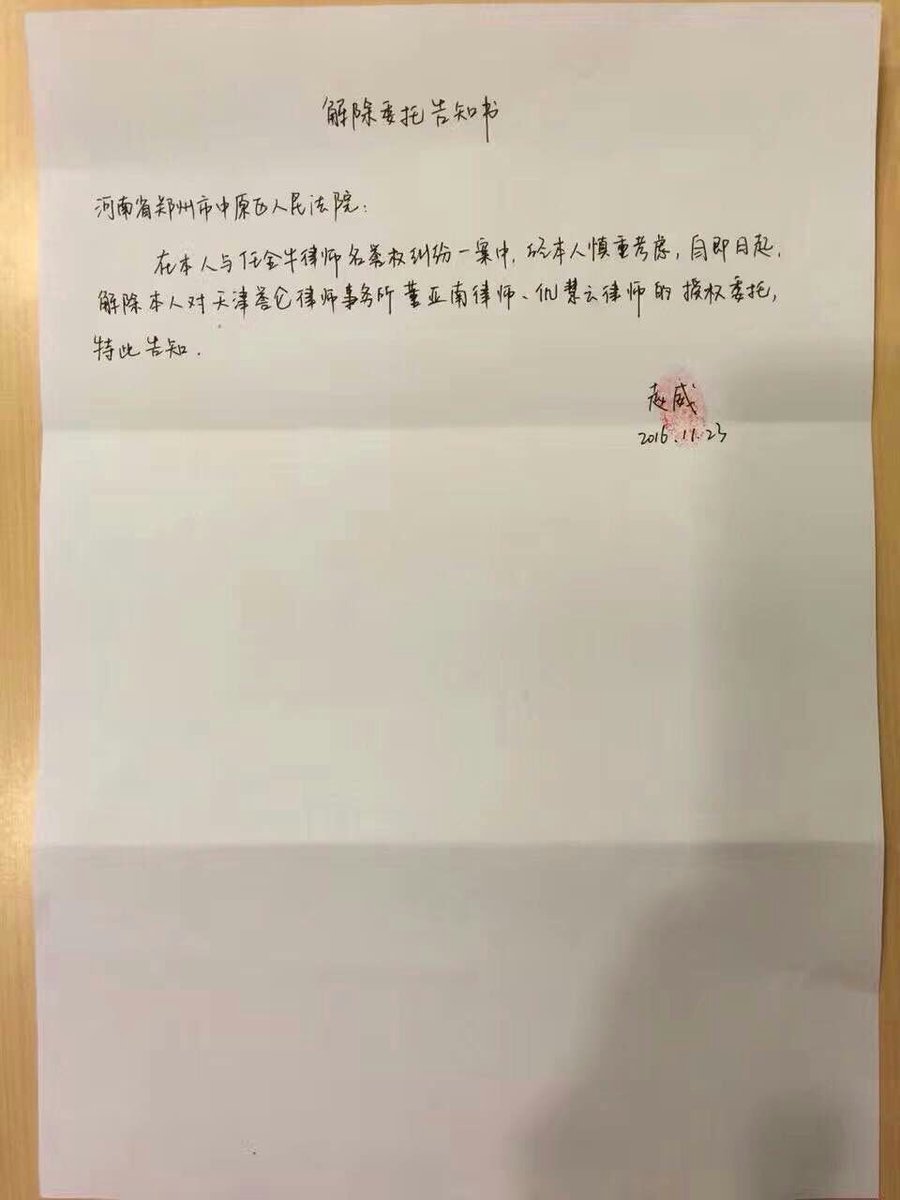 解除委托告知书
河南省郑州市中原区人民法院:
在本人与任全牛律师名誉权纠纷一案中,经本人慎重考虑,自即日起,
解除本人对天津誉仑律师事务所董亚南律师、仉慧云律师的授权委托,
特此告知.
赵威
2016.11.23